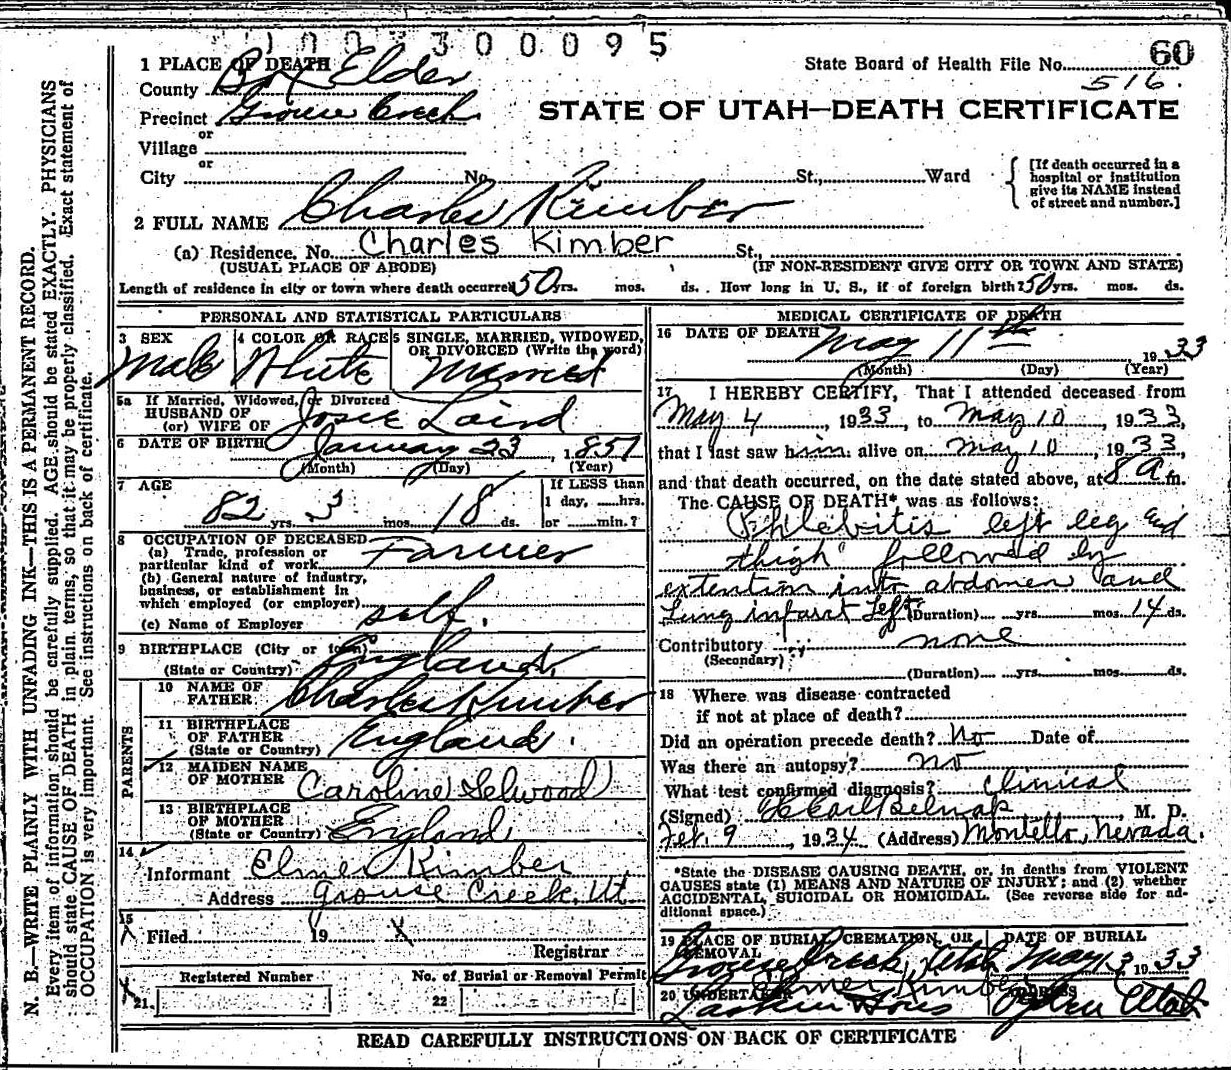 1 0 0 3 3 0 0 0 9 5
60
1 PLACE OF DEATH
State Board of Health File No. 516.
County Box Elder
STATE OF UTAH—DEATH CERTIFICATE
Precinct Grouse Creek
or
Village
or
City No. St., Ward
[If death occurred in a
hospital or institution
give its NAME instead
of street and number.]
2 FULL NAME Charles Kimber
(a) Residence, No. Charles Kimber St.,
(USUAL PLACE OF ABODE) (IF NON-RESIDENT GIVE CITY OR TOWN AND STATE)
Length of residence in city or town where death occurred 50 yrs. mos. ds. How long in U. S., if of foreign birth? 50 yrs. mos. ds.
PERSONAL AND STATISTICAL PARTICULARS
3 SEX Male
4 COLOR OR RACE White
5 SINGLE, MARRIED, WIDOWED,
OR DIVORCED (Write the word)
Married
5a If Married, Widowed, or Divorced
HUSBAND OF
(or) WIFE OF Josie Laird
6 DATE OF BIRTH January 23, 1851
(Month) (Day) (Year)
7 AGE
82 yrs. 3 mos. 18 ds.
If LESS than
1 day, hrs.
or min.?
8 OCCUPATION OF DECEASED
(a) Trade, profession or
particular kind of work Farmer
(b) General nature of Industry,
business, or establishment in
which employed (or employer)
(c) Name of Employer self.
9 BIRTHPLACE (City or town)
(State or Country) England.
PARENTS
10 NAME OF
FATHER Charles Kimber
11 BIRTHPLACE
OF FATHER
(State or Country) England.
12 MAIDEN NAME
OF MOTHER Caroline Selwood
13 BIRTHPLACE
OF MOTHER
(State or Country) England
14
Informant Elmer Kimber
Address Grouse Creek, Ut.
15
X Filed 19 X
Registrar
Registered Number No. of Burial or Removal Permit
X 21. 22
MEDICAL CERTIFICATE OF DEATH
16 DATE OF DEATH May 11th 1933
(Month) (Day) (Year)
17 I HEREBY CERTIFY, That I attended deceased from
May 4, 1933, to May 10, 1933,
that I last saw him alive on May 10, 1933,
and that death occurred, on the date stated above, at 8 a m.
The CAUSE OF DEATH* was as follows:
Phlebitis left leg and
thigh followed by
extention into abdomen and
Lung infarct Left (Duration) yrs. mos. 14 ds.
Contributory none
(Secondary)
(Duration) yrs. mos. ds.
18 Where was disease contracted
if not at place of death?
Did an operation precede death? No Date of
Was there an autopsy? no
What test confirmed diagnosis? Clinical
(Signed) Earl Belnap, M. D.
Feb. 9, 1934 (Address) Montello, Nevada.
*State the DISEASE CAUSING DEATH, or, in deaths from VIOLENT
CAUSES state (1) MEANS AND NATURE OF INJURY; and (2) whether
ACCIDENTAL, SUICIDAL OR HOMICIDAL. (See reverse side for ad-
ditional space.)
19 PLACE OF BURIAL, CREMATION, OR
REMOVAL
Grouse Creek, Utah
DATE OF BURIAL
May 13 1933
20 UNDERTAKER Elmer Kimber
Larkin & Sons
ADDRESS
Ogden Utah
READ CAREFULLY INSTRUCTIONS ON BACK OF CERTIFICATE
N. B.—WRITE PLAINLY WITH UNFADING INK—THIS IS A PERMANENT RECORD.
Every item of information should be carefully supplied. AGE should be stated EXACTLY. PHYSICIANS
should state CAUSE OF DEATH in plain terms, so that it may be properly classified. Exact statement of
OCCUPATION is very important. See instructions on back of certificate.